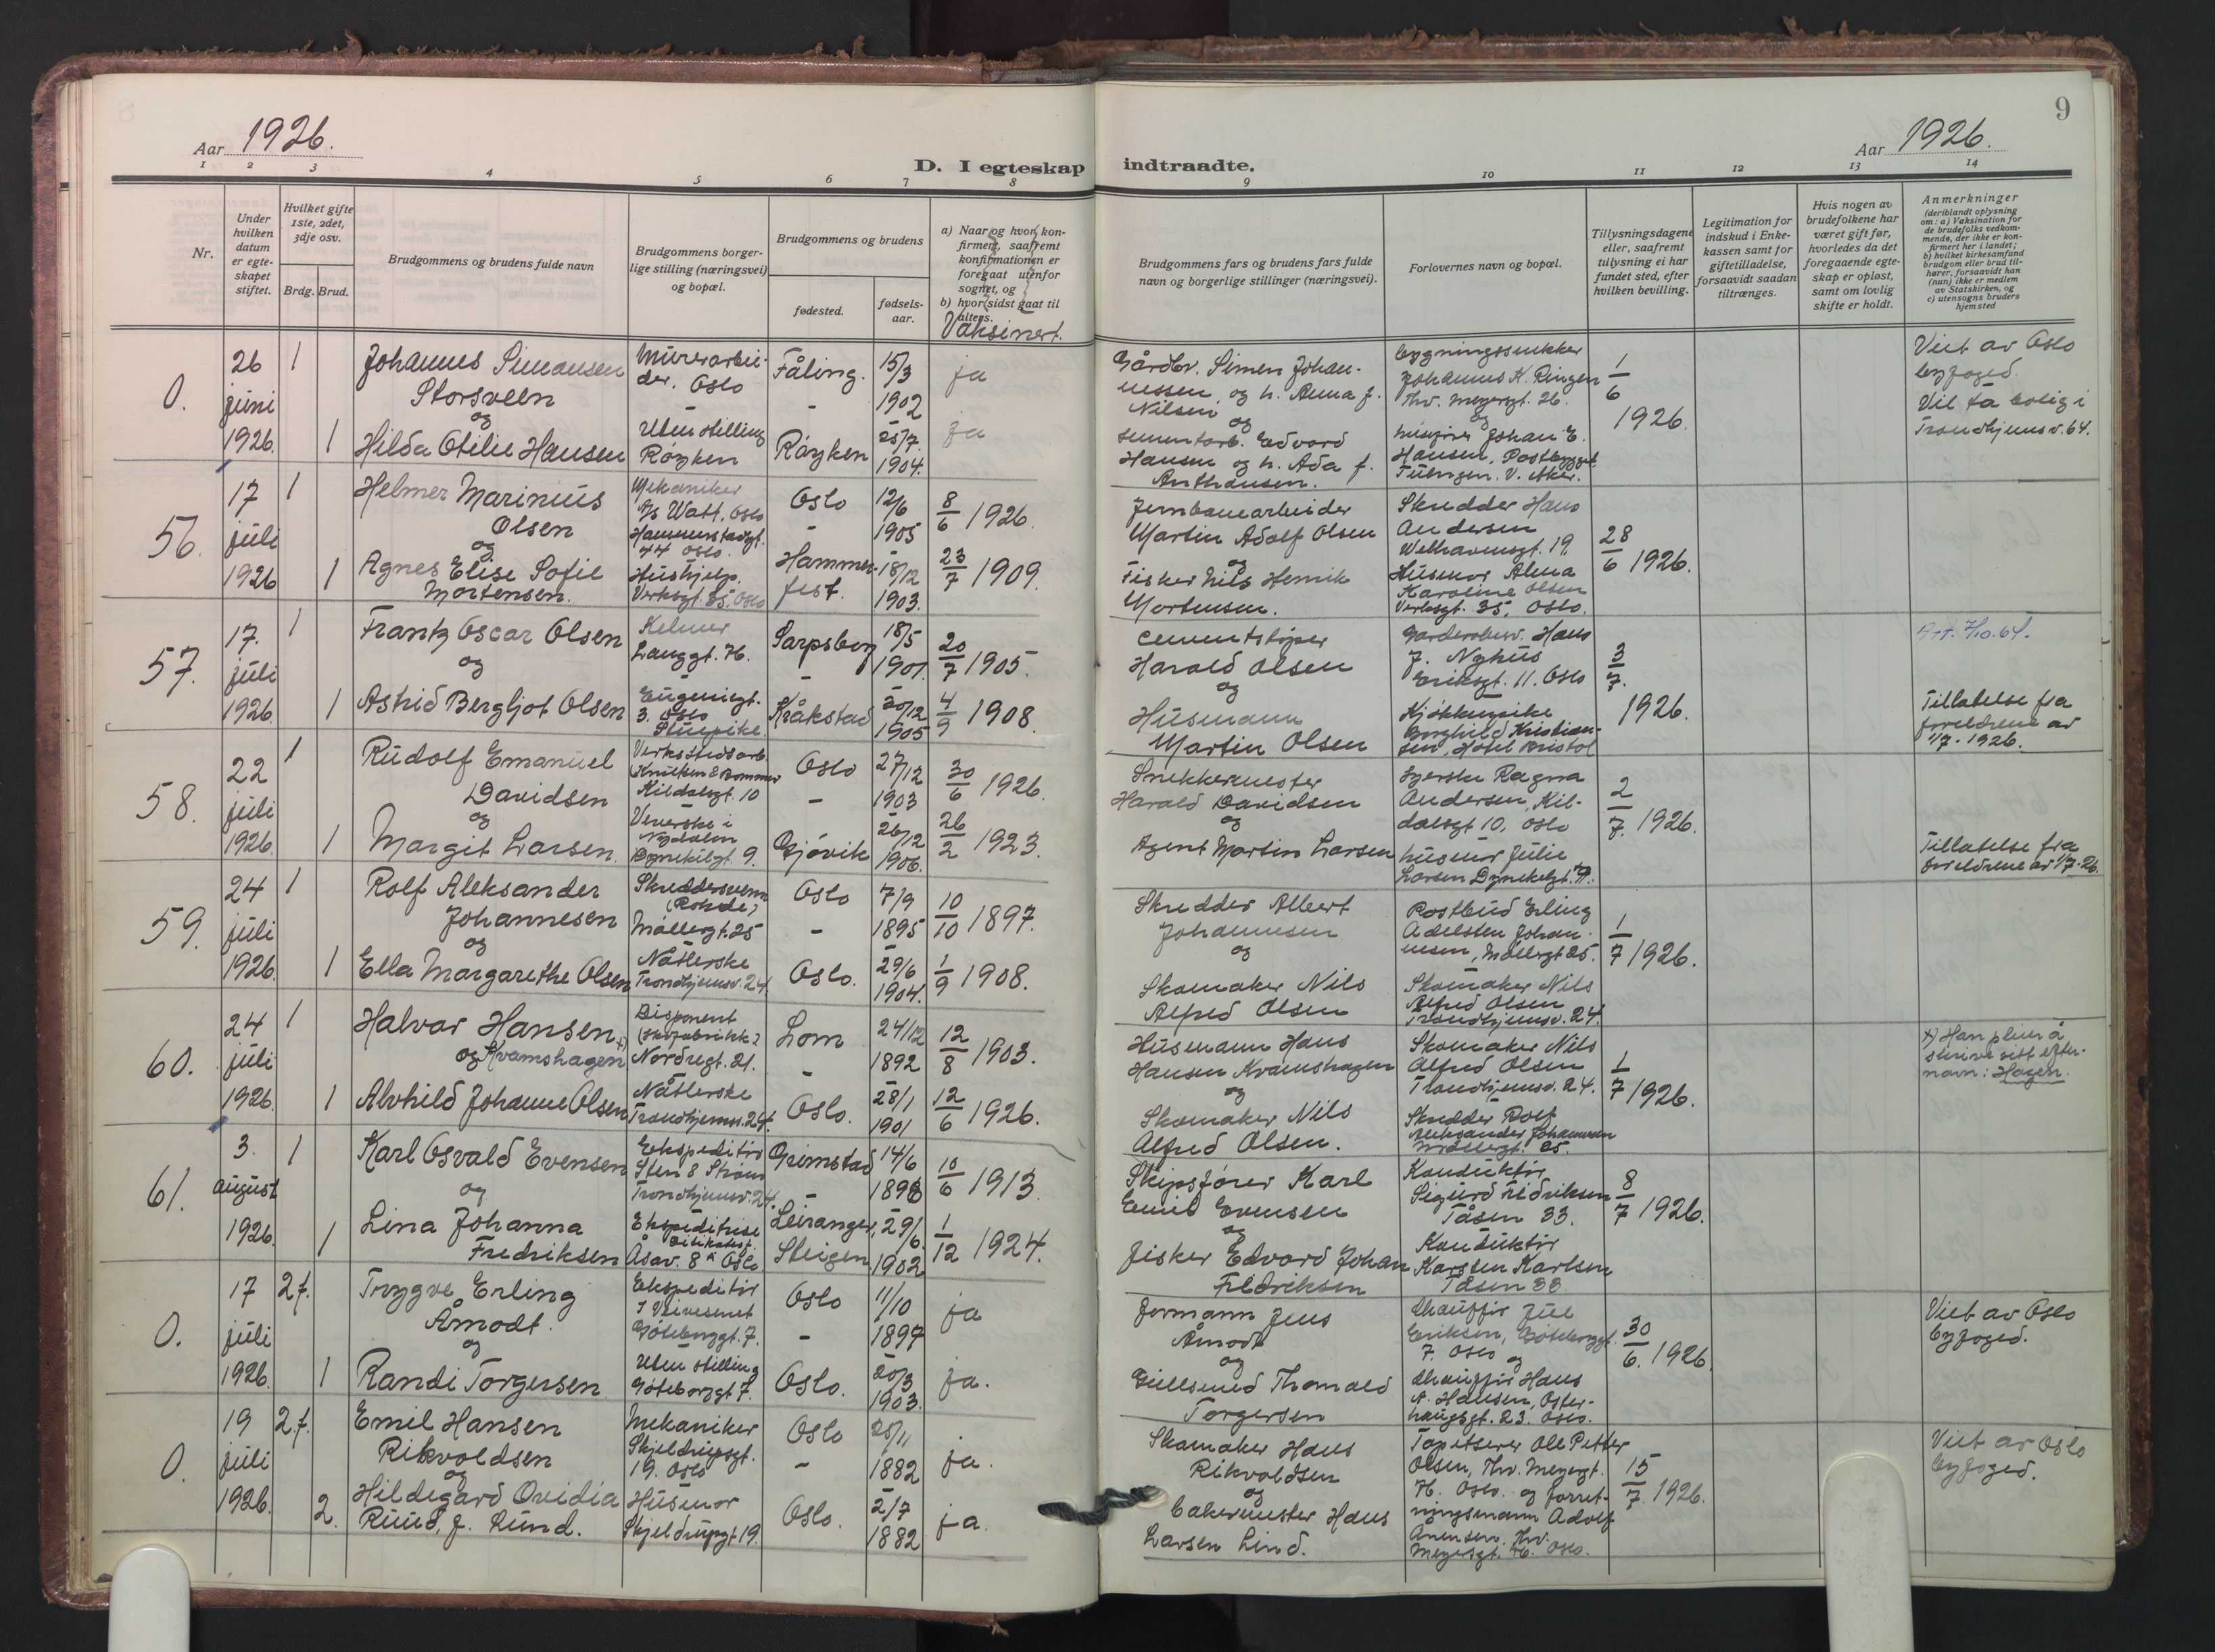 9
Aar 1926.
Aar 1926.
D. I egteskap indtraadte.
1 2 3 4 5 6 7 8 9 10 11 12 13 14
Nr.
Under hvilken datum er egteskapet stiftet.
Hvilket gifte 1ste, 2det, 3dje osv.
Brdg. Brud.
Brudgommens og brudens fulde navn
Brudgommens borgerlige stilling (næringsvei) og bopæl.
Brudgommens og brudens
fødested.
fødselsaar.
a) Naar og hvor konfirmert, saafremt konfirmationen er foregaat utenfor sognet, og
b) hvor sidst gaat til alters.
Vaksinert.
Brudgommens fars og brudens fars fulde navn og borgerlige stillinger (næringsvei).
Forlovernes navn og bopæl.
Tillysningsdagene eller, saafremt tillysning ei har fundet sted, efter hvilken bevilling.
Legitimation for indskud i Enkekassen samt for giftetilladelse, forsaavidt saadan tiltrænges.
Hvis nogen av brudefolkene har været gift før, hvorledes da det foregaaende egteskap er opløst, samt om lovlig skifte er holdt.
Anmerkninger
(deriblandt oplysning om: a) Vaksination for de brudefolks vedkommende, der ikke er konfirmert her i landet;
b) hvilket kirkesamfund brudgom eller brud tilhører, forsaavidt han (hun) ikke er medlem av Statskirken, og
c) utensogns bruders hjemsted
0.
26 juni 1926.
1
Johannes Simensen
Storsveen
og
1
Hilda Otilie Hansen
Murerarbeider. Oslo
Uten stilling
Røyken
Fåling.
Røyken
15/3 1902
25/7 1904.
ja
ja
Gårdbr. Simen Johannessen, og h. Anna f. Nilsen
og
Sementarb. Edvard Hansen og h. Ada f. Anthonsen.
bygningssnekker
Johannes K. Ringen
Thv. Meyersgt. 26.
og
Johan E.
Hansen,
1/6 1926.
Viet av Oslo
byfoged.
Vil få bolig i
Trondhjemsv. 64.
56.
17 juli 1926
1
Helmer Marinius
Olsen
og
1
Agnes Elise Sofie
Mortensen.
Mekaniker
A/s Watt. Oslo
Hammerstadgt.
44 Oslo.
Hushjelp.
Verksgt. 35. Oslo
Oslo
Hammerfest.
12/6 1905
18/12 1903.
8/6 1926.
23/7 1909.
Jernbanearbeider
Martin Adolf Olsen
og
Fisker Nils Henrik
Mortensen.
Skredder Hans
Andersen
Welhavensgt. 19.
Husmor Alma
Karoline Olsen
Verksgt. 35, Oslo.
28/6 1926.
57.
17. juli 1926.
1
Frantz Oscar Olsen
og
1
Astrid Bergljot Olsen
Kelner
Langgt. 76.
Eugeniegt.
3. Oslo
Stuepike.
Sarpsborg
Kråkstad
18/5 1901.
20/12 1905
20/7 1905.
4/9 1908.
cementstøper
Harald Olsen
og
Husmann
Martin Olsen
Garderobev. Hans
J. Nyhus
Eriksgt. 11. Oslo
Kjøkkenpike
Borghild Kristiansen, Hotel Bristol
3/7. 1926.
Att. 7/10.64.
Tillatelse fra
foreldrene av
1/7. 1926.
58.
22 juli 1926.
1
Rudolf Emanuel
Davidsen
og
1
Margit Larsen.
Verkstedsarb.
Kildalsgt. 10
Veverske i
Nydalen
Dynekilgt. 9.
Oslo
Gjøvik
27/12 1903
26/12 1906.
30/6 1926.
26/2 1923.
Snekkermester
Harald Davidsen
og
Agent Martin Larsen
Syerske Ragna
Andersen, Kildalsgt 10, Oslo
husmor Julie
Larsen Dynekilgt. 9.
2/7. 1926.
Tillatelse fra
foreldrene av 1/7.26.
59.
24 juli 1926.
1
Rolf Aleksander
Johannesen
og
1
Ella Margarethe Olsen
Skreddersvenn
Møllergt. 25
Nåtlerske
Trondhjemsv. 24.
Oslo
Oslo.
7/9 1895
29/6 1904.
10/10 1897.
1/9 1908.
Skredder Albert
Johannesen
og
Skomaker Nils
Alfred Olsen
Postbud Erling
Adelsten Johannesen, Møllergt 25.
Skomaker Nils
Alfred Olsen
Trondhjemsv. 24.
1/7 1926.
60.
24 juli 1926.
1
Halvar Hansen
og Kvamshagen x)
1
Alvhild Johanne Olsen
Disponent
(skofabrikk)
Nordregt. 21.
Nåtlerske
Trondhjemsv. 24.
Lom
Oslo.
24/12 1892
28/1 1901
12/8 1903.
12/6 1926.
Husmann Hans
Hansen Kvamshagen
og
Skomaker Nils
Alfred Olsen.
Skomaker Nils
Alfred Olsen
Trondhjemsv. 24.
Skredder Rolf
Aleksander Johannesen
Møllergt. 25.
1/7 1926.
x) Han pleier å
skrive sitt efternavn: Hagen.
61.
3. august 1926.
1
Karl Osvald Evensen
og
1
Lina Johanna
Fredriksen
Ekspeditør
Sten & Strøm
Trondhjemsv. 24.
Ekspeditrise
Åsav. 8 a Oslo
Grimstad
Leiranger,
Steigen
14/6 1898
29/6. 1902
10/6 1913.
1/12 1924.
Skipsfører Karl
Emil Evensen
og
Fisker Edvard Johan
Fredriksen
Konduktør
Sigurd Fredriksen
Tåsen 33.
Konduktør
Karsten Karlsen
Tåsen 33
8/7 1926.
0.
17 juli 1926.
2 f.
Trygve Erling
Åmodt.
og
1
Randi Torgersen
Ekspeditør
i Veivesenet
Gøteborggt. 7.
Uten stilling
Gøteborggt 7.
Oslo
Oslo.
11/10 1897
20/3 1903.
ja
ja.
Formann Jens
Åmodt
og
Gullsmed Thomald
Torgersen
chauffør Juel
Eriksen, Gøteborggt.
7. Oslo og
chauffør Hans
A. Hansen, Osterhausgt. 23. Oslo.
30/6. 1926.
Viet av Oslo
byfoged.
0.
19 juli 1926.
2 f.
Emil Hansen
Rikvoldsen
og
2.
Hildegard Ovidia
Ruud, f. Lund.
Mekaniker
Skjeldrupsgt.
19. Oslo
Husmor
Skjeldrupgt 19.
Oslo
Oslo.
25/11 1882
2/7 1882
ja.
ja.
Skomaker Hans
Rikvoldsen
og
bakermester Hans
Larsen Lind.
Tapetserer Ole Petter
Olsen, Thv. Meyergt.
76. Oslo. og forretningsmann Adolf
Thv.
Meyersgt. 76. Oslo.
15/7. 1926.
Viet av Oslo
byfoged.